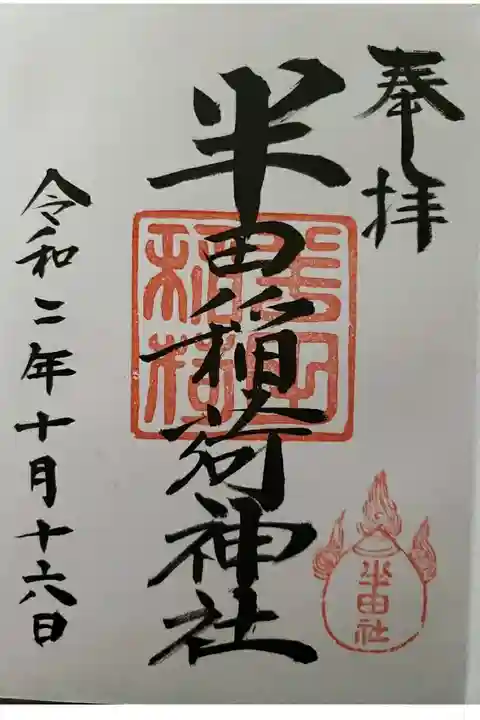 奉拝
半田稲荷神社
半田
稲荷
令和二年十月十六日
半田社